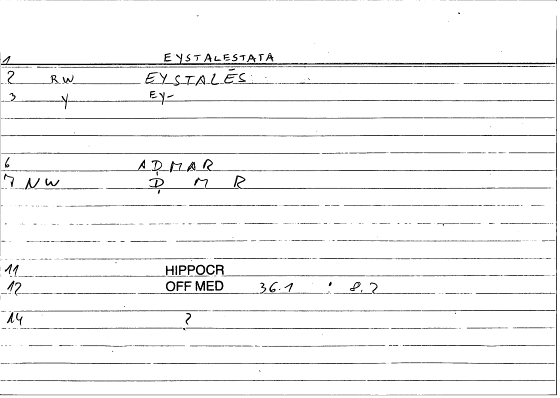 1 EYSTALESTATA
2 RW EYSTALĒS
3 Y EY-
6 AḌMAR
7 NW Ḍ M R
11 HIPPOCR
12 OFF MED 36.1 · 8.2
14 ?